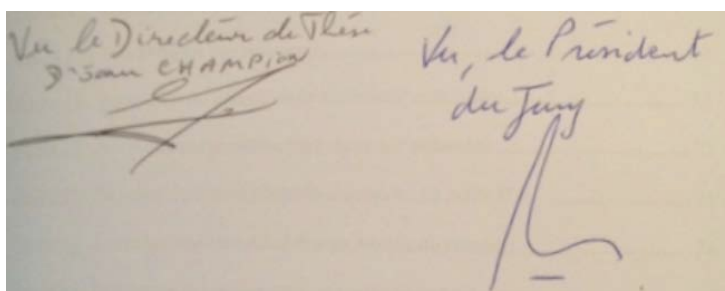 Vu le Directeur de Thèse
Dr Jean CHAMPION
Vu, le Président
du Jury